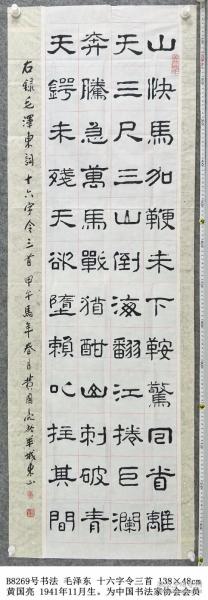 山快馬加鞭未下鞍驚回首離
天三尺三山倒海翻江捲巨瀾
奔騰急萬馬戰猶酣山刺破青
天鍔未殘天欲墮賴以拄其間
右録毛澤東詞十六字令三首 甲午馬年春月黃國亮於羊城東山
B8269号书法 毛泽东 十六字令三首 138×48cm
黄国亮 1941年11月生。为中国书法家协会会员